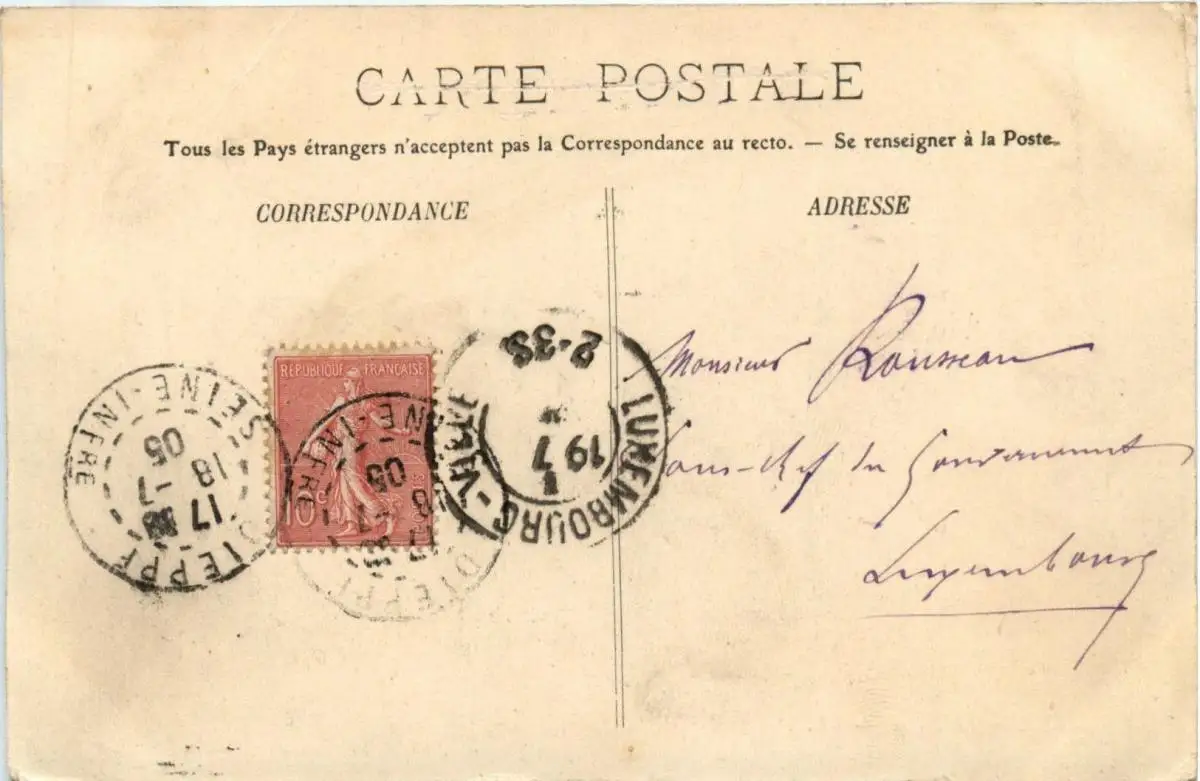 CARTE POSTALE
Tous les Pays étrangers n'acceptent pas la Correspondance au recto. — Se renseigner à la Poste.
CORRESPONDANCE
ADRESSE
RÉPUBLIQUE FRANÇAISE
10c
DIEPPE
17
18 -7
05
SEINE-INFRE
DIEPPE
-7
05
SEINE-INFRE
LUXEMBOURG-VILLE
19 7
2-3S
Monsieur Rousseau
Sous-chef du Gouvernement
Luxembourg